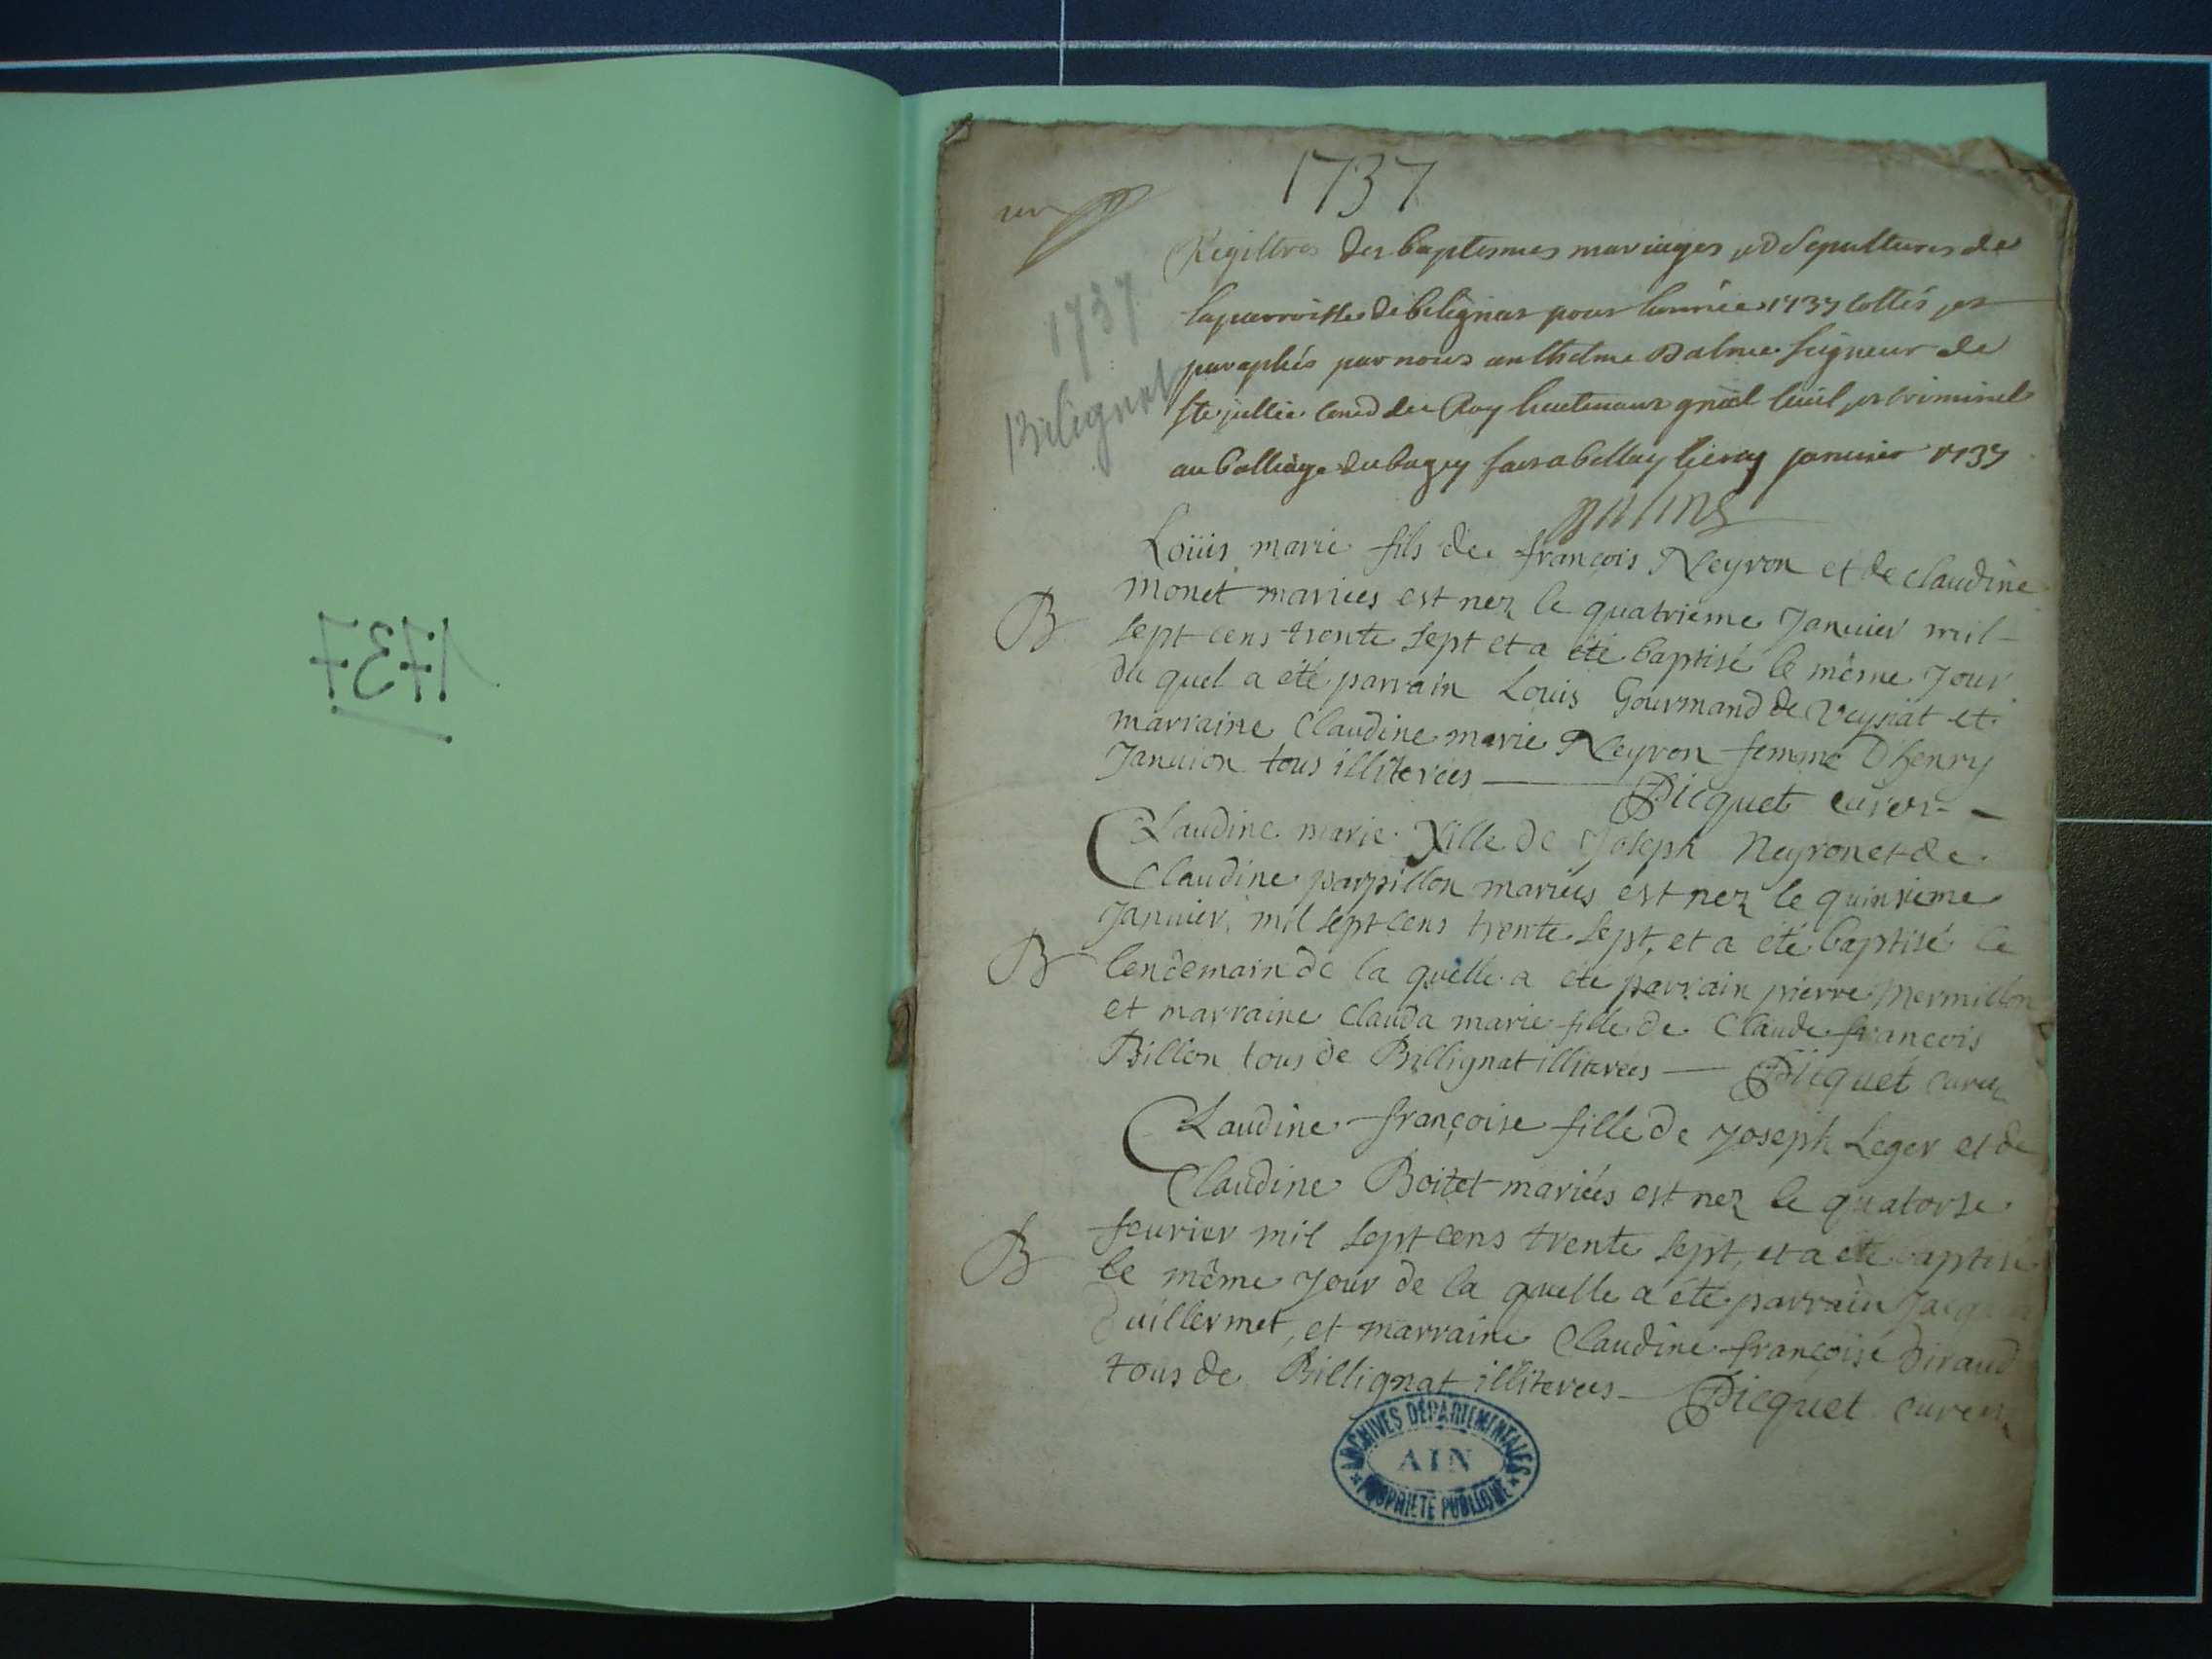 1737
1737
un
Registres des baptesmes mariages et Sepultures de
la parroisse de belignat pour lannée 1737 cottés et
paraphés par nous anthelme Balme seigneur de
ste jullie cons du Roy lieutenant gñal civil et criminel
au balliage du bugey fait a bellay le janvier 1737
1737
Belignat
Balme
Loüis marie fils de françois Neyron et de claudine
B
monet mariées est nez le quatrieme Januier mil
sept cens trente sept et a été baptisé le même Jour
du quel a été parrain Louis Gourmand de Veysiat et
marraine Claudine marie Neyron femme Dhenry
Januion tous illiterées — Picquet curez
Claudine marie fille de Joseph Neyron et de
Claudine parpillon mariées est nez le quinzieme
Januier mil sept cens trente sept, et a été baptisé le
B
lendemain de la quelle a été parrain pierre Mermillon
et marraine Clauda marie fille de Claude françois
Billion tous de Billignat illiterées — Picquet curez
Claudine françoise fille de Joseph Leger et de
Claudine Boitet mariées est nez le quatorse
feurier mil sept cens trente sept, et a été baptisé
B
le même Jour de la quelle a été parrain Jacques
Guillermet, et marraine Claudine françoise Giraud
tous de Billignat illiterées — Picquet curez
ARCHIVES DÉPARTEMENTALES
AIN
PROPRIÉTÉ PUBLIQUE